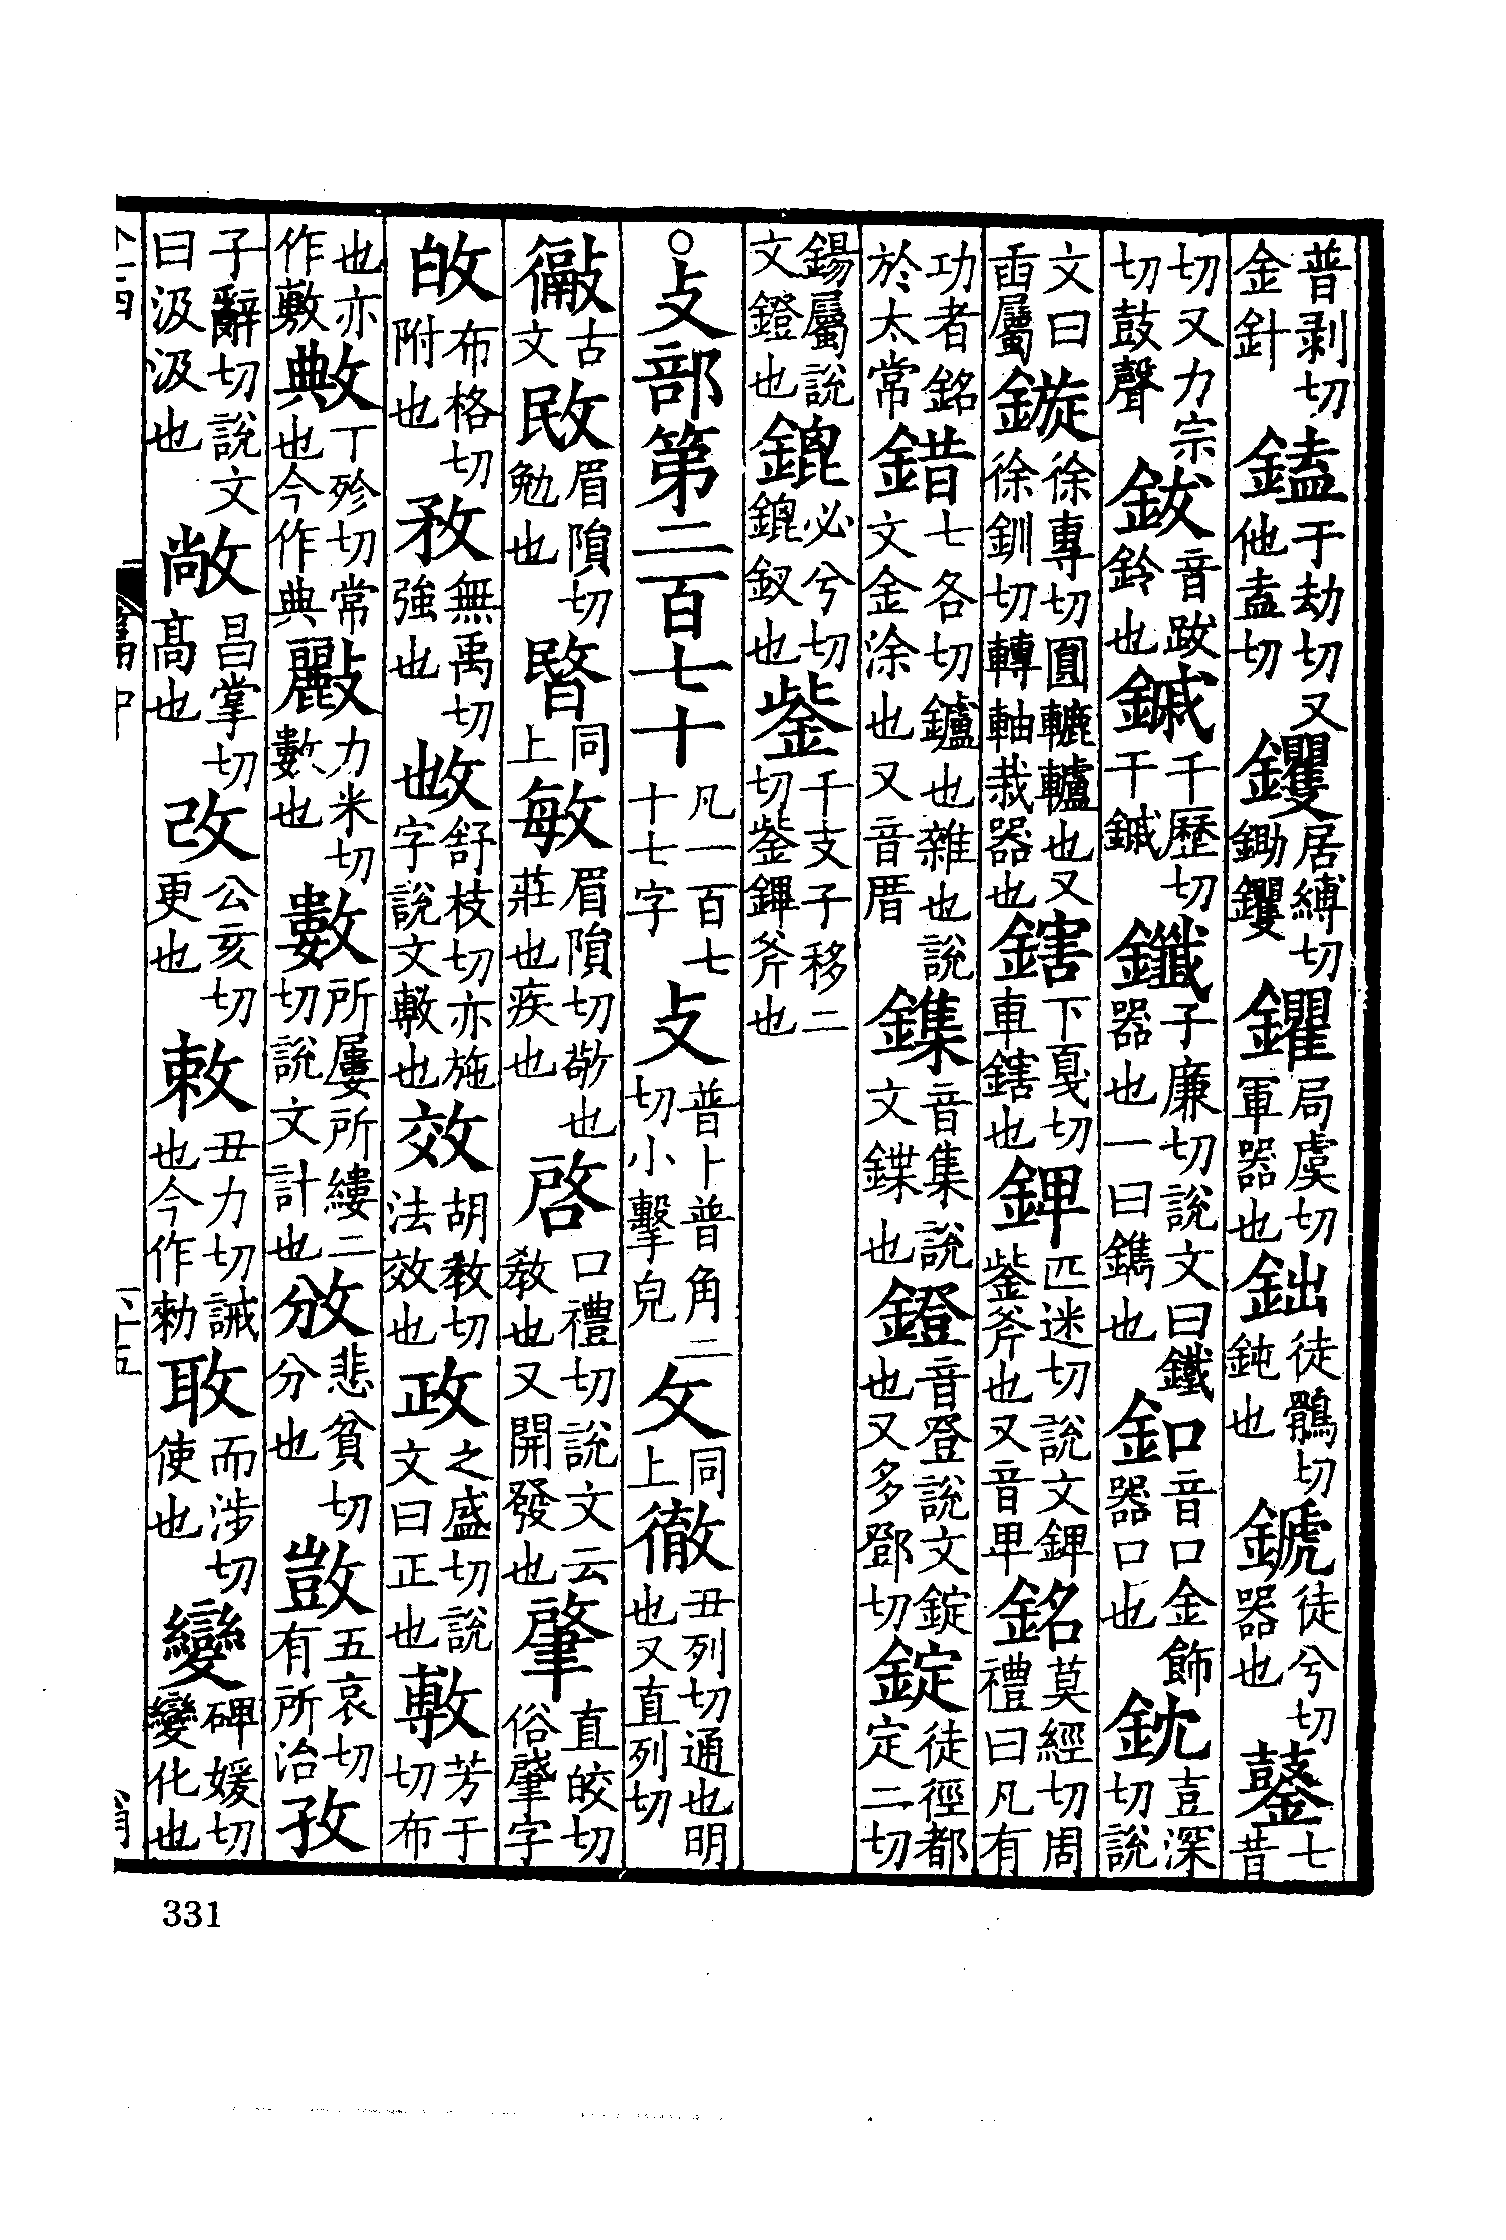 普剥切金針鎑于劫切又他盍切钁居縛切鋤钁鑺局虞切軍器也鈯徒鶻切鈍也鍦徒兮切器也鼜七昔
切又力宗切鼓聲鈸音跋鈴也鏚千歷切干鏚鑯子廉切說文曰鐵器也一曰鐫也釦音口金飾器口也鈂壴深切說
文曰臿屬鏇徐專切圓轆轤也又徐釧切轉軸裁器也鎋下戛切車鎋也錍匹迷切說文錍鈭斧也又音卑銘莫經切周禮曰凡有
功者銘於太常錯七各切鑢也雜也說文金涂也又音厝鏶音集說文鍱也鐙音登說文錠也又多鄧切錠徒徑都定二切
鍚屬說文鐙也鎞必兮切鎞釵也鈭千支子移二切鈭錍斧也
○攴部第二百七十凡一百七十七字攴普卜普角二切小擊皃攵同上徹丑列切通也明也又直列切
𢕹古文敃眉隕切勉也敯同上敏眉隕切敬也莊也疾也啓口禮切說文云教也又開發也肇直皎切俗肈字
敀布格切附也敄無禹切強也𢻱舒枝切亦施字說文敷也效胡教切法效也政之盛切說文曰正也敷芳于切布
也亦作敷敟丁殄切常也今作典𢿛力米切數也數所屢所縷二切說文計也攽悲貧切分也敱五哀切有所治孜
子辭切說文曰汲汲也敞昌掌切高也改公亥切更也敕丑力切誡也今作勅㪅而涉切使也變碑媛切變化也
331